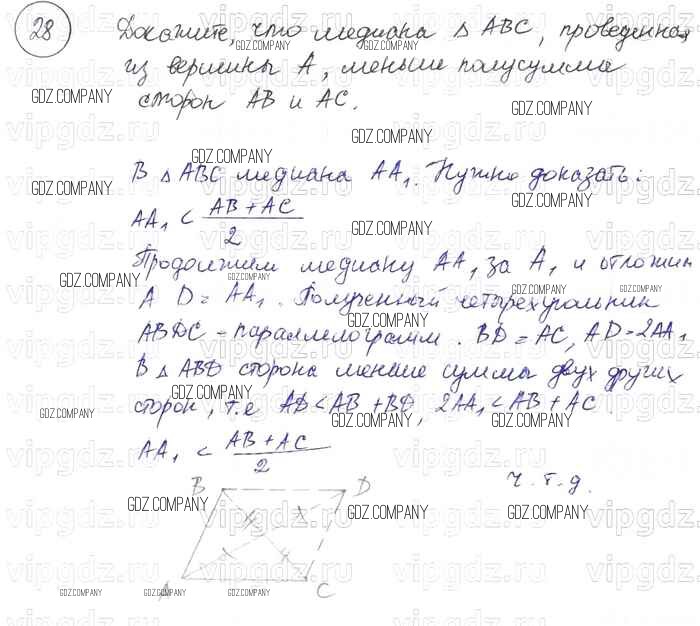 28
Докажите, что медиана Δ ABC, проведенная
из вершины A, меньше полусуммы
сторон AB и AC.
В Δ ABC медиана AA₁. Нужно доказать:
AA₁ < (AB + AC)/2
Продолжим медиану AA₁ за A₁ и отложим
A D = AA₁. Полученный четырехугольник
ABDC - параллелограмм. BD = AC, AD = 2AA₁
В Δ ABD сторона меньше суммы двух других
сторон, т.е AD < AB + BD, 2AA₁ < AB + AC.
AA₁ < (AB + AC)/2
ч.т.д.
B D
A C
GDZ.COMPANY
vipgdz.ru